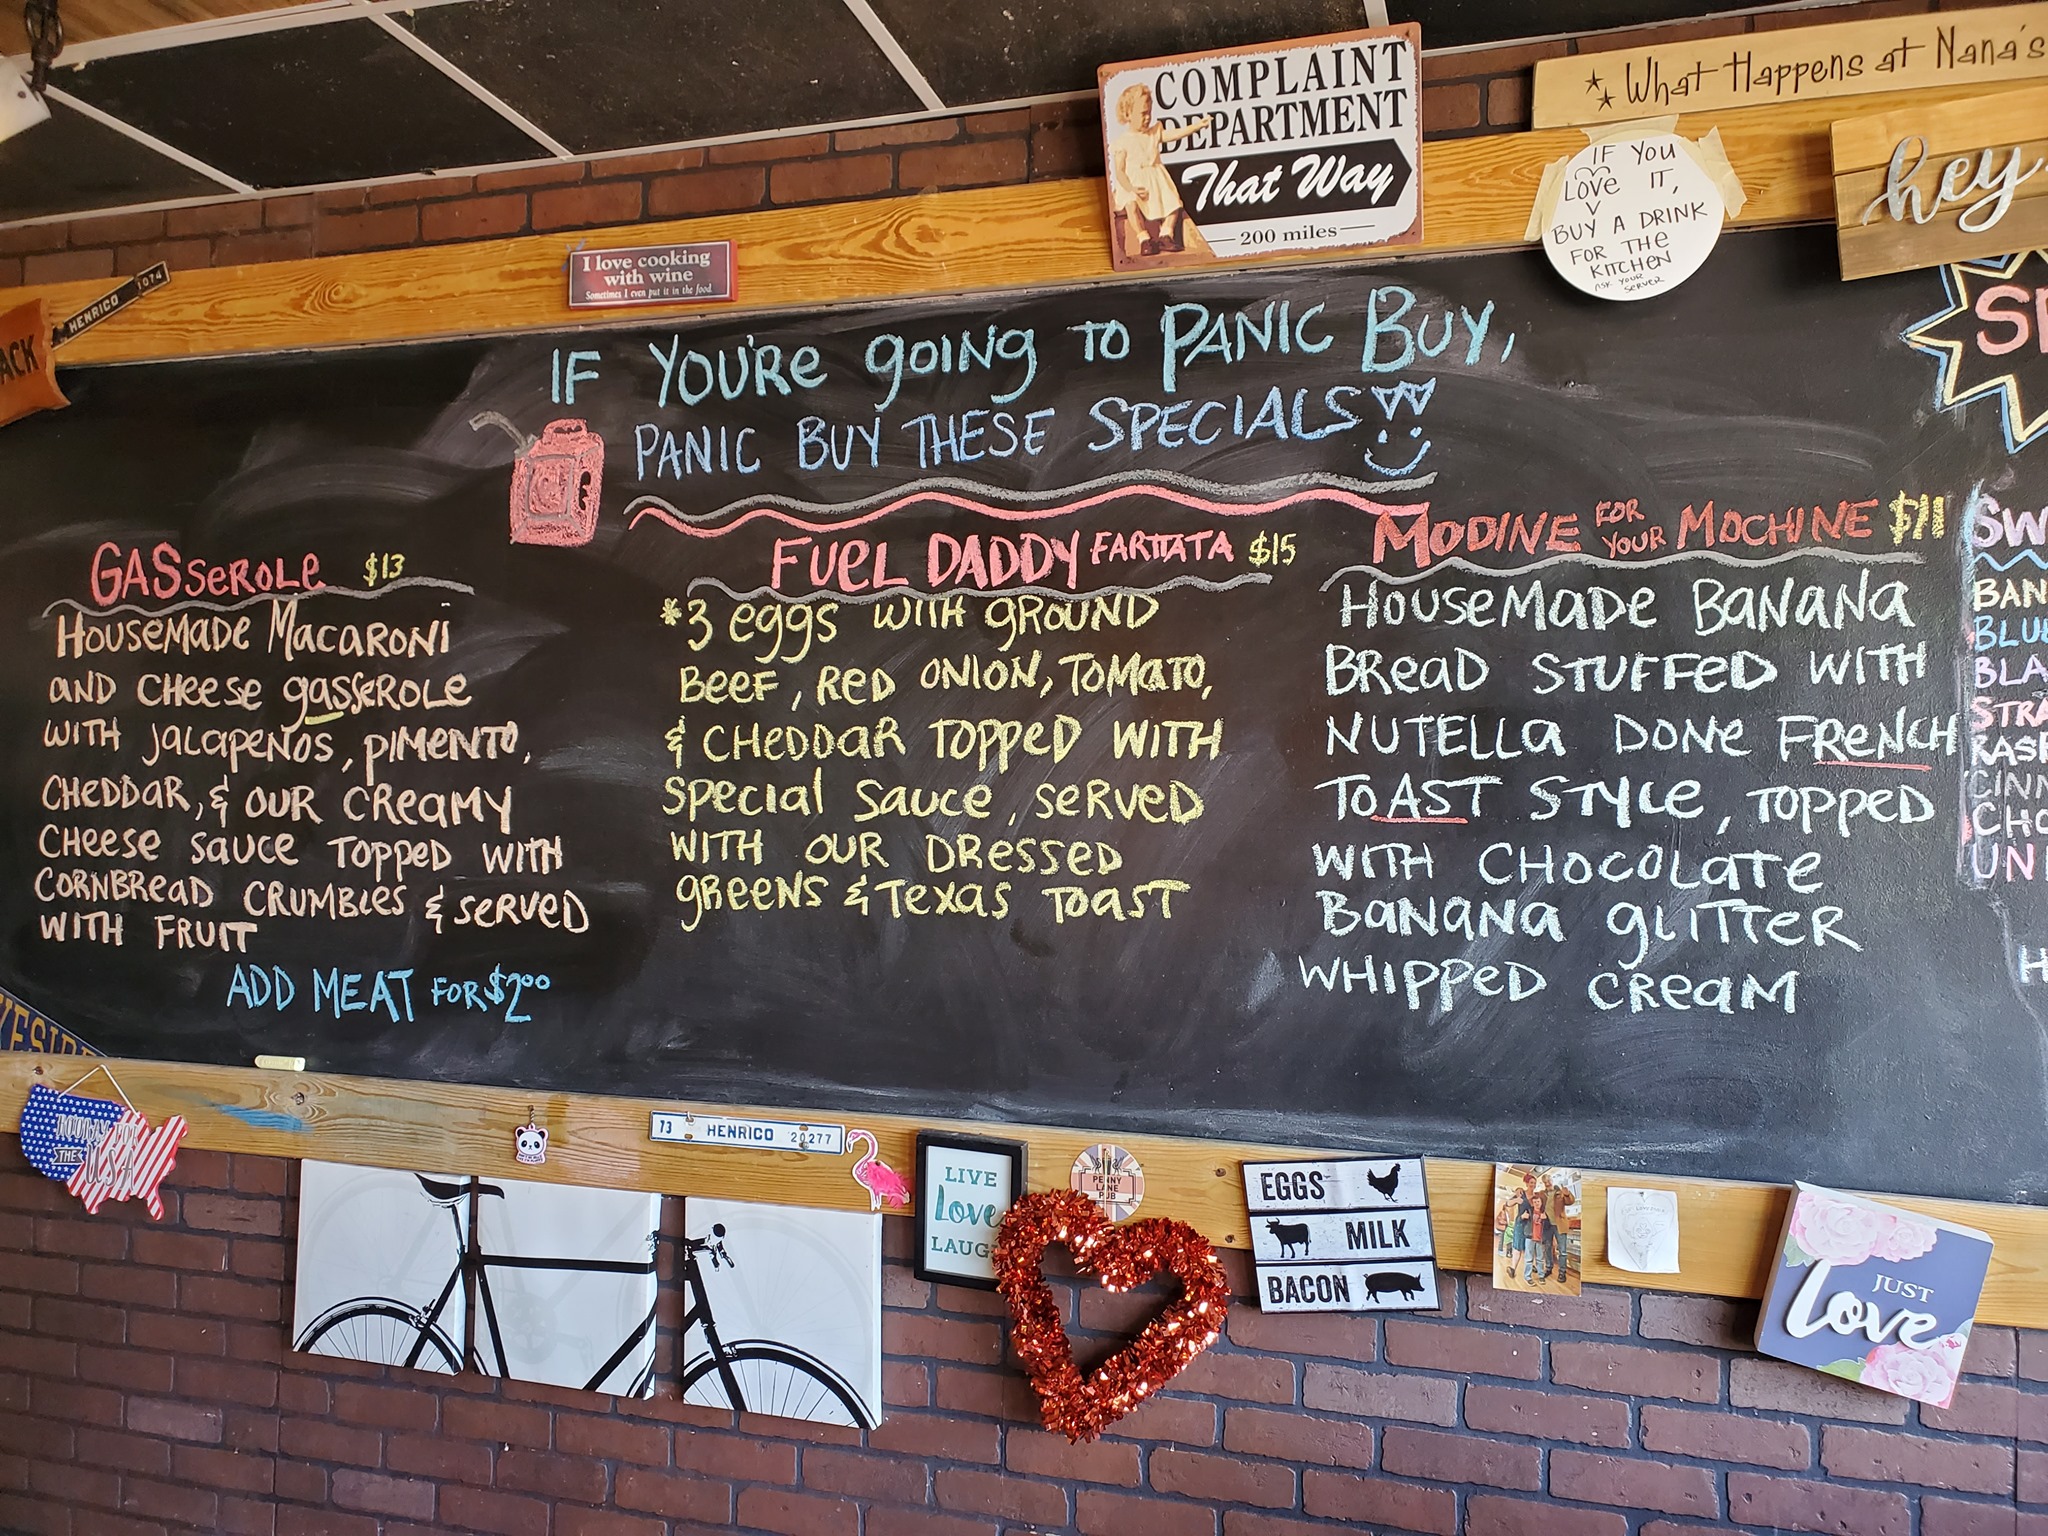 COMPLAINT
DEPARTMENT
That Way
200 miles
What Happens at Nana's
IF YOU
LOVE IT,
BUY A DRINK
FOR THE
KITCHEN
ASK YOUR
SERVER
hey
I love cooking
with wine
Sometimes I even put it in the food
HENRICO 1074
ACK
IF YOU'RE GOING TO PANIC BUY,
PANIC BUY THESE SPECIALS
GASSEROLE $13
HOUSEMADE MACARONI
AND CHEESE GASSEROLE
WITH JALAPENOS, PIMENTO,
CHEDDAR, & OUR CREAMY
CHEESE SAUCE TOPPED WITH
CORNBREAD CRUMBLES & SERVED
WITH FRUIT
ADD MEAT FOR $2.00
FUEL DADDY FARTTATA $15
*3 EGGS WITH GROUND
BEEF, RED ONION, TOMATO,
& CHEDDAR TOPPED WITH
SPECIAL SAUCE, SERVED
WITH OUR DRESSED
GREENS & TEXAS TOAST
MODINE FOR YOUR MOCHINE $11
HOUSEMADE BANANA
BREAD STUFFED WITH
NUTELLA DONE FRENCH
TOAST STYLE, TOPPED
WITH CHOCOLATE
BANANA GLITTER
WHIPPED CREAM
SP
SW
BAN
BLUE
BLA
STRA
RASP
CINN
CHO
UN
H
KESIDE
THE
USA
73 HENRICO 20277
LIVE
Love
LAUG
PENNY
LANE
PUB
EGGS
MILK
BACON
JUST
Love